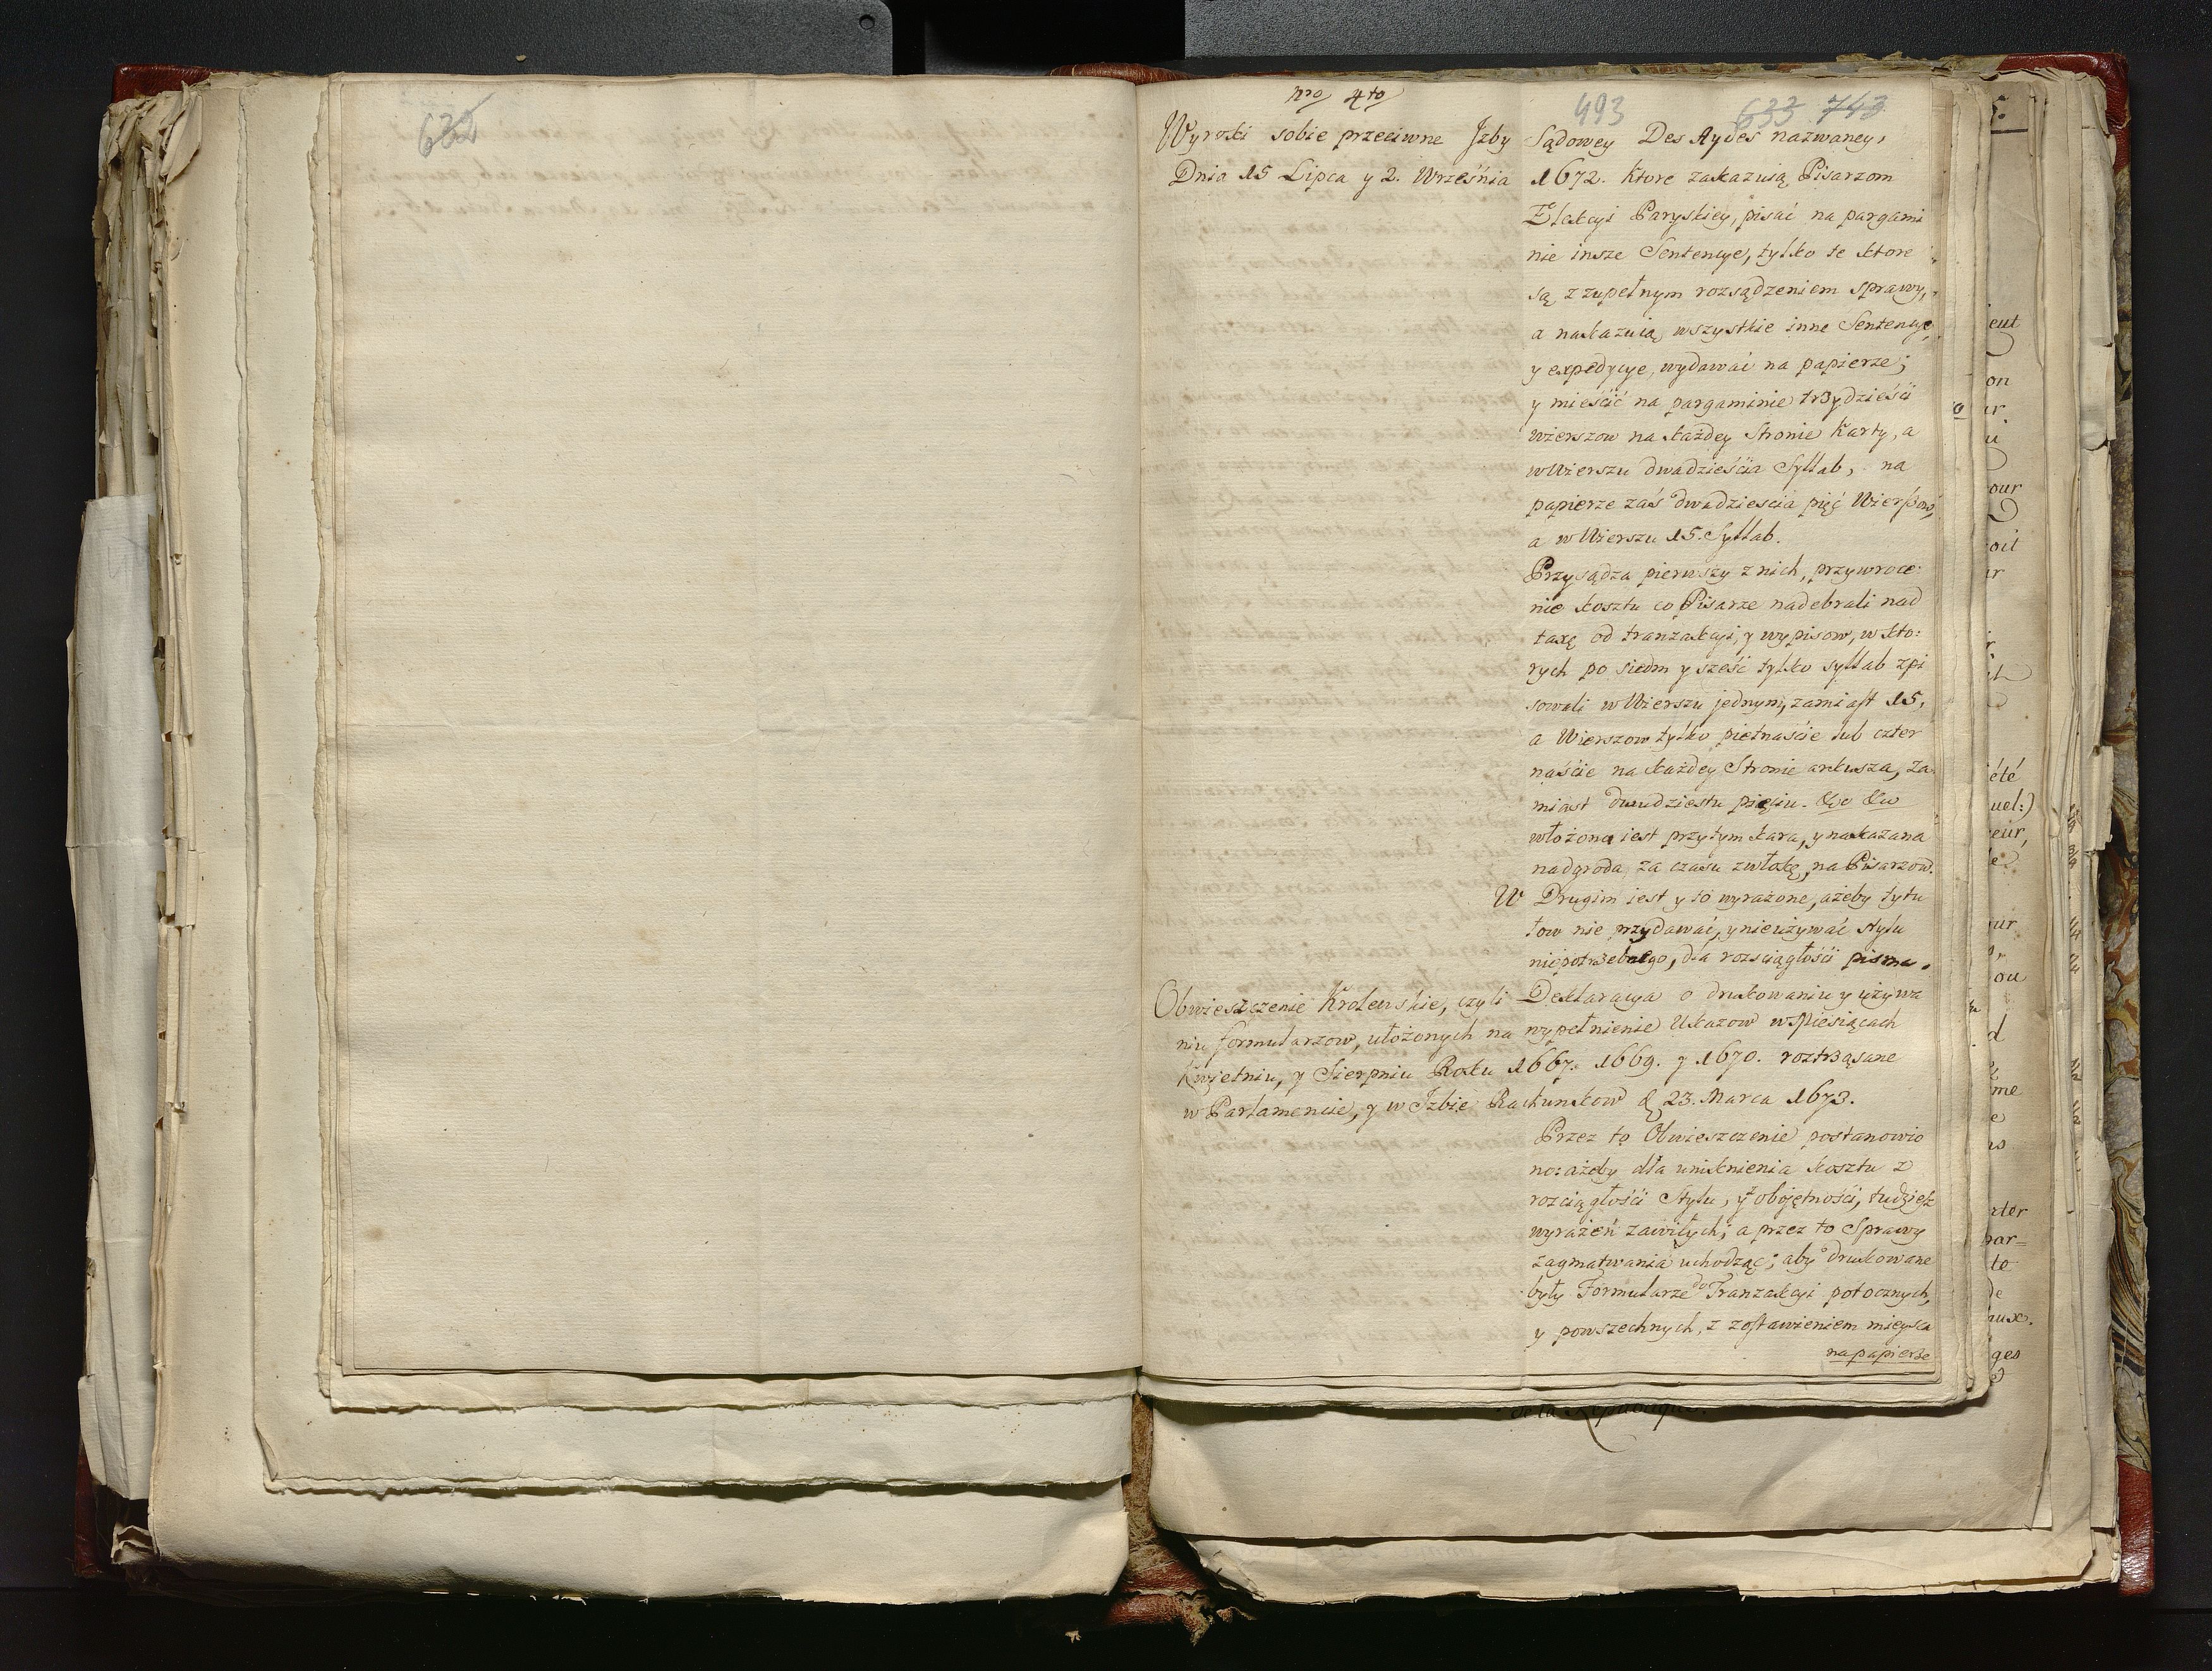 632
nro 4to
493 633 743
Wyroki sobie przeciwne Jzby Sądowey Des Aydes nazwaney,
Dnia 15 Lipca y 2. Września 1672. Ktore zakazuią Pisarzom
Elekcyi Paryskiey, pisać na pargami
nie insze Sentencye, tylko te ktore
są z zupełnym rozsądzeniem sprawy,
a nakazuią wszystkie inne Sentencye
y expedycye, wydawać na papierze;
y mieścić na pargaminie trzydzieści
wierszow na każdey Stronie Karty, a
w Wierszu dwadzieścia Syllab, na
papierze zaś dwadziescia pięć Wierszow,
a w Wierszu 15. Syllab.
Przysądza pierwszy z nich, przywroce:
nie kosztu co Pisarze nadebrali nad
taxę od tranzakcyi, y wypisow, w kto:
rych po siedm y sześć tylko syllab zpi
sowali w Wierszu jednym, zamiast 15,
a Wierszow tylko piętnaście lub czter
naście na każdey Stronie arkusza, za
miast dwudziestu pięciu. &c &c
włożona iest przytym kara, y nakazana
nadgroda za czasu zwłokę, na Pisarzow.
W Drugim iest y to wyrażone, ażeby tytu
łow nie przydawać, y nieużywać stylu
niepotrzebnego, dla rozciągłości pisma.
Obwieszczenie Krolewskie, czyli Deklaracya o drukowaniu y używa
niu formularzow, ułożonych na wypełnienie Ukazow w Miesiącach
Kwietniu, y Sierpniu Roku 1667. 1669. y 1670. roztrząsane
w Parlamencie, y w Jzbie Rachunkow d. 23. Marca 1673.
Przez to Obwieszczenie postanowio
no: ażeby dla uniknienia kosztu z
rozciągłości Stylu, y obojętności, tudzież
wyrażeń zawiłych; a przez to Sprawy
zagmatwania uchodząc; aby drukowane
były Formularze do Tranzakcyi potocznych,
y powszechnych, z zostawieniem mieysca
na papierze